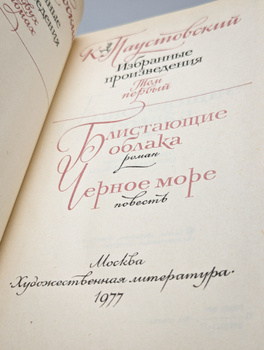 К. Паустовский
Избранные
произведения
Том
первый
Блистающие
облака
роман
Черное море
повесть
Москва
·Художественная литература·
1977